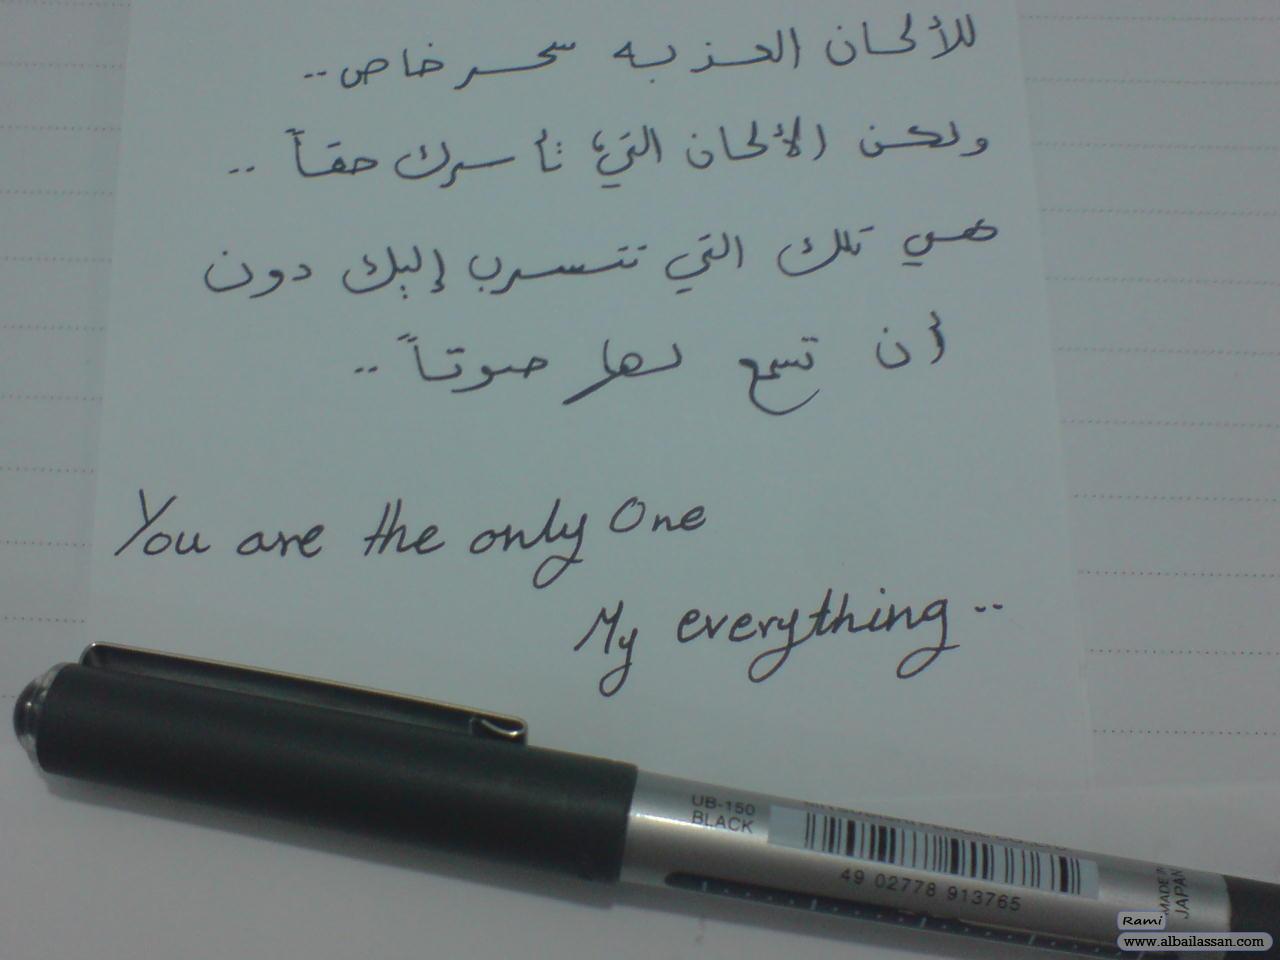 للألحان العذبه سحر خاص..
ولكن الألحان التي تأسرك حقاً ..
هي تلك التي تتسرب إليك دون
أن تسمع لها صوتاً ..
You are the only One
My everything ..
UB-150
BLACK
49 02778 913765
MADE IN
JAPAN
Rami
www.albailassan.com